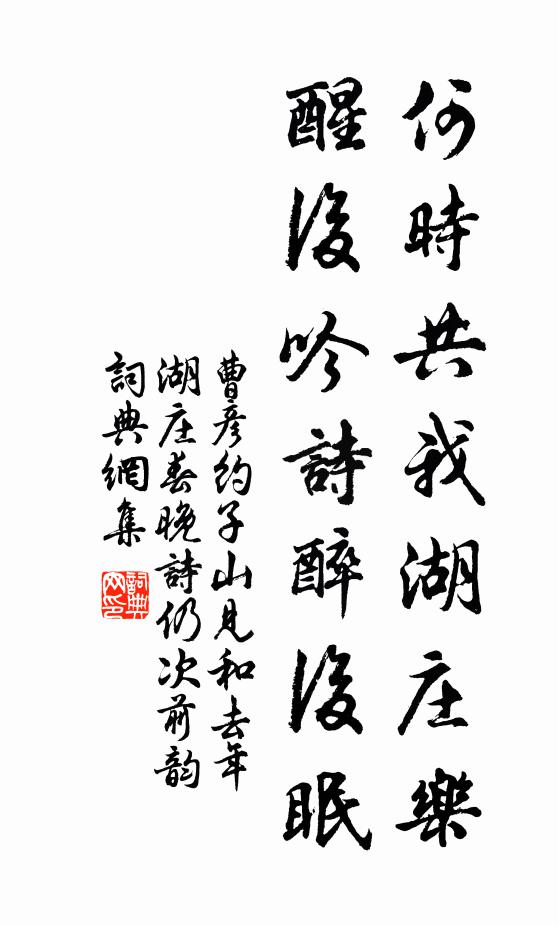 何時共我湖庄樂
醒後吟詩醉後眠
曹彦約子山見和去年
湖庄春晚詩仍次前韵
詞典網集
詞典網印